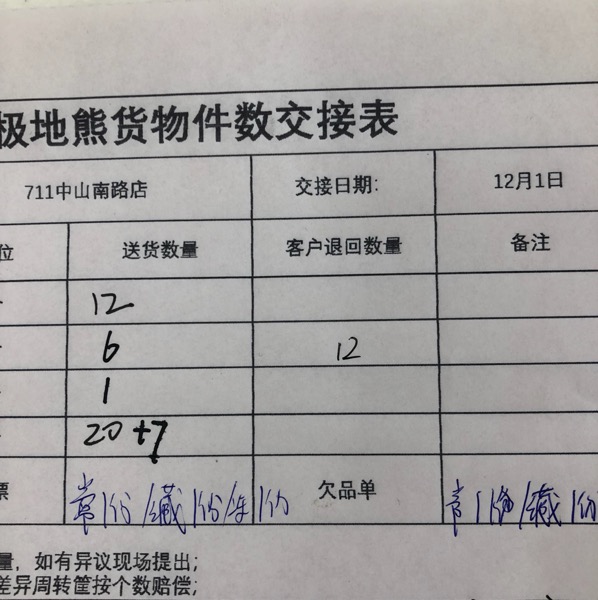 极地熊货物件数交接表
711中山南路店 交接日期: 12月1日
位 送货数量 客户退回数量 备注
12
6 12
1
20+7
票 常1份/藏1份/ 1份 欠品单 常1份/藏1份
量，如有异议现场提出;
差异周转筐按个数赔偿;